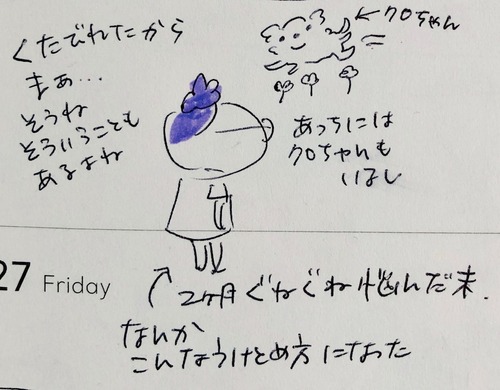 くたびれたから
まぁ…
そうね
そういうことも
あるよね
クロちゃん
あっちには
クロちゃんも
いるし
27 Friday
2ヶ月ぐねぐね悩んだ末.
なんか
こんなうけとめ方になった